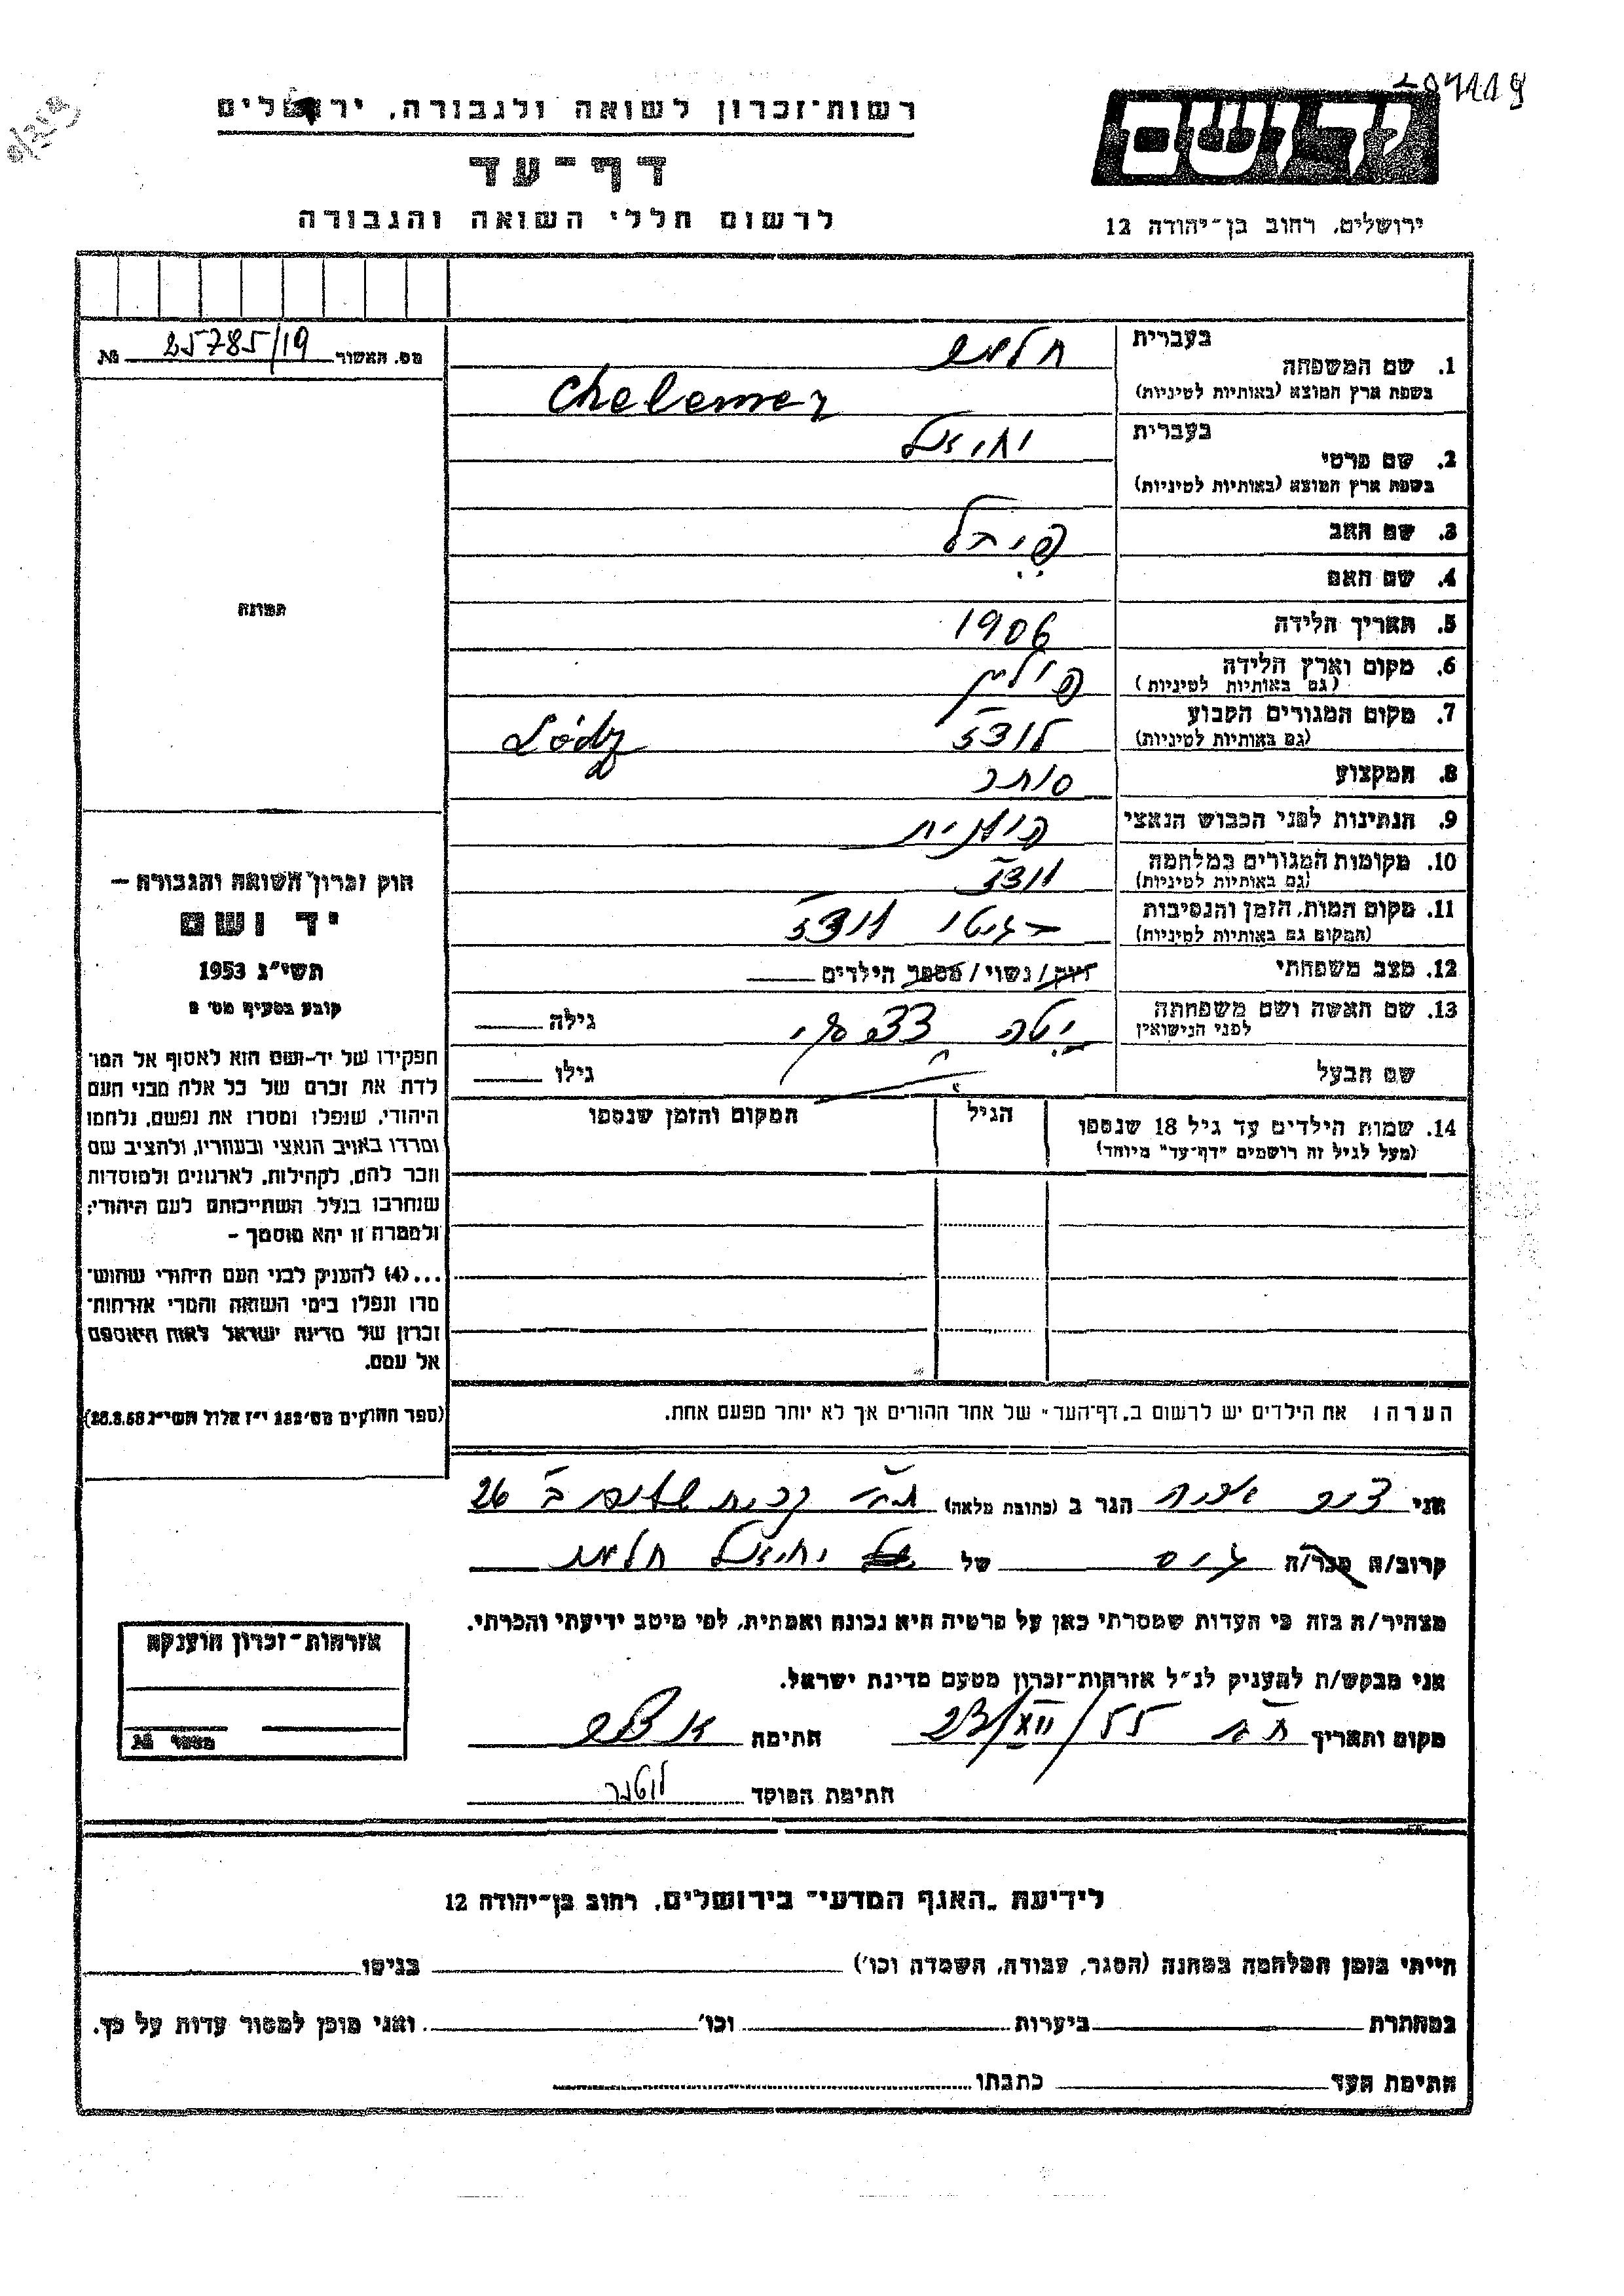 רשות־זכרון לשואה ולגבורה, ירושלים
דף־עד
לרשום חללי השואה והגבורה
יד ושם
ירושלים, רחוב בן־יהודה 12
מס. האשור 25785/19 №
תמונה
1. שם המשפחה בעברית חלמר
בשפת ארץ המוצא (באותיות לטיניות) Chelemer
2. שם פרטי בעברית יחיאל
בשפת ארץ המוצא (באותיות לטיניות)
3. שם האב
4. שם האם
5. תאריך הלידה 1906
6. מקום וארץ הלידה פולין
(גם באותיות לטיניות)
7. מקום המגורים הקבוע לודז Lódz
(גם באותיות לטיניות)
8. המקצוע סוחר
9. הנתינות לפני הכבוש הנאצי פולנית
10. מקומות המגורים במלחמה לודז
(גם באותיות לטיניות)
11. מקום המות, הזמן והנסיבות בגיטו לודז
(המקום גם באותיות לטיניות)
12. מצב משפחתי רוק/נשוי/מספר הילדים
13. שם האשה ושם משפחתה גילה
לפני הנישואין
שם הבעל גילו
14. שמות הילדים עד גיל 18 שנספו הגיל המקום והזמן שנספו
(מעל לגיל זה רושמים "דף־עד" מיוחד)
הערה: את הילדים יש לרשום ב"דף־העד" של אחד ההורים אך לא יותר מפעם אחת.
חוק זכרון השואה והגבורה —
יד ושם
תשי״ג 1953
קובע בסעיף מס׳ 2
תפקידו של יד־ושם הוא לאסוף אל המו־
לדת את זכרם של כל אלה מבני העם
היהודי, שנפלו ומסרו את נפשם, נלחמו
ומרדו באויב הנאצי ובעוזריו, ולהציב שם
וזכר להם, לקהילות, לארגונים ולמוסדות
שנחרבו בגלל השתייכותם לעם היהודי;
ולמטרה זו יהא מוסמך —
...(4) להעניק לבני העם היהודי שהוש־
מדו ונפלו בימי השואה והמרי אזרחות־
זכרון של מדינת ישראל לאות היאספם
אל עמם.
(ספר החוקים מס׳ 132 י״ז אלול תשי״ג 28.8.53)
אני הגר ב (כתובת מלאה) 26
קרוב/ה מכר/ה גיס של יחיאל חלמר
מצהיר/ה בזה כי העדות שמסרתי כאן על פרטיה היא נכונה ואמתית, לפי מיטב ידיעתי והכרתי.
אני מבקש/ת להעניק לנ״ל אזרחות־זכרון מטעם מדינת ישראל.
מקום ותאריך 23/XII/55 חתימה
חתימת הפוקד
אזרחות־זכרון הוענקה
מספר №
לידיעת "האגף המדעי" בירושלים, רחוב בן־יהודה 12
הייתי בזמן המלחמה במחנה (הסגר, עבודה, השמדה וכו׳) בגיטו
במחתרת ביערות וכו׳ ואני מוכן למסור עדות על כך.
חתימת העד כתבתו